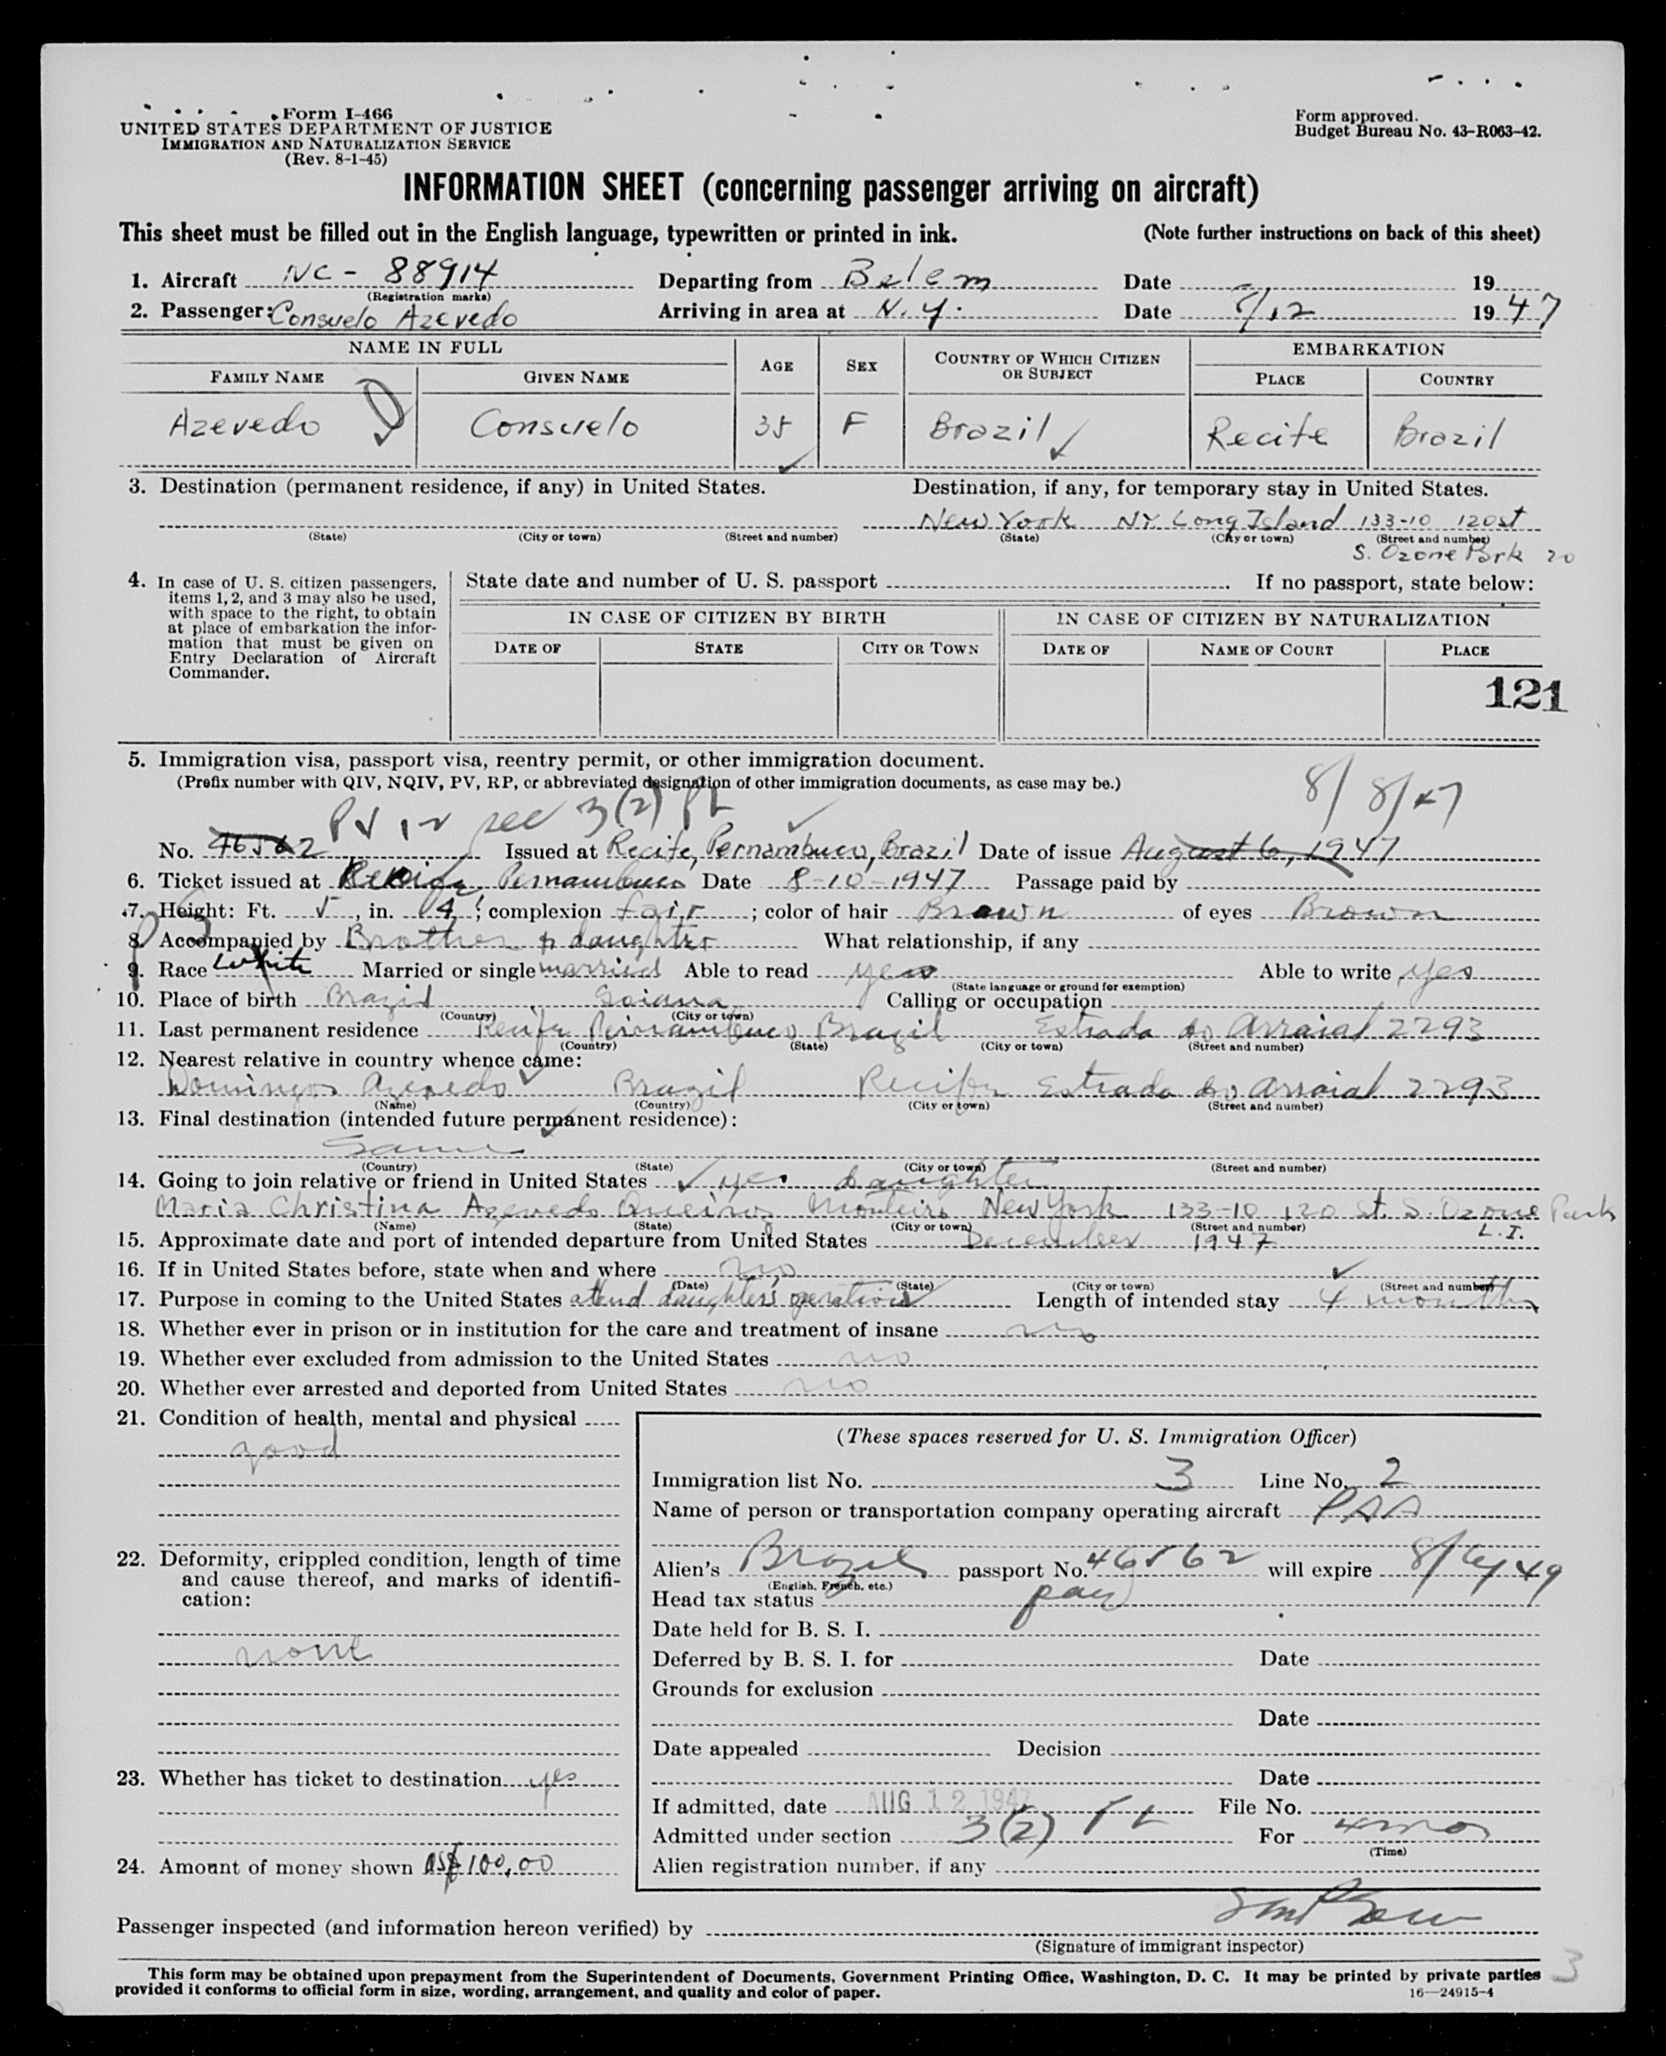 Form I-466
UNITED STATES DEPARTMENT OF JUSTICE
IMMIGRATION AND NATURALIZATION SERVICE
(Rev. 8-1-45)
Form approved.
Budget Bureau No. 43-R063-42.
INFORMATION SHEET (concerning passenger arriving on aircraft)
This sheet must be filled out in the English language, typewritten or printed in ink. (Note further instructions on back of this sheet)
1. Aircraft NC - 88914 Departing from Belem Date 19
(Registration marks)
2. Passenger: Consuelo Azevedo Arriving in area at N.Y. Date 8/12 1947
NAME IN FULL AGE SEX COUNTRY OF WHICH CITIZEN OR SUBJECT EMBARKATION
FAMILY NAME GIVEN NAME PLACE COUNTRY
Azevedo Consuelo 35 F Brazil Recife Brazil
3. Destination (permanent residence, if any) in United States. Destination, if any, for temporary stay in United States.
New York NY Long Island 133-10 120 st
(State) (City or town) (Street and number) (State) (City or town) (Street and number)
S. Ozone Park 20
4. In case of U. S. citizen passengers, items 1, 2, and 3 may also be used, with space to the right, to obtain at place of embarkation the information that must be given on Entry Declaration of Aircraft Commander.
State date and number of U. S. passport If no passport, state below:
IN CASE OF CITIZEN BY BIRTH IN CASE OF CITIZEN BY NATURALIZATION
DATE OF STATE CITY OR TOWN DATE OF NAME OF COURT PLACE
121
5. Immigration visa, passport visa, reentry permit, or other immigration document.
(Prefix number with QIV, NQIV, PV, RP, or abbreviated designation of other immigration documents, as case may be.)
8/8/47
PV 12 sec 3(2) PL
No. 46562 Issued at Recife, Pernambuco, Brazil Date of issue August 6, 1947
6. Ticket issued at Recife Pernambuco Date 8-10-1947 Passage paid by
7. Height: Ft. 5, in. 4; complexion fair; color of hair Brown of eyes Brown
8. Accompanied by Brother & daughter What relationship, if any
9. Race White Married or single married Able to read yes Able to write yes
(State language or ground for exemption)
10. Place of birth Brazil Goiana Calling or occupation
(Country) (City or town)
11. Last permanent residence Recife Pernambuco Brazil Estrada do Arraial 2293
(Country) (State) (City or town) (Street and number)
12. Nearest relative in country whence came:
Domingos Azevedo Brazil Recife Estrada do Arraial 2293
(Name) (Country) (City or town) (Street and number)
13. Final destination (intended future permanent residence):
Same
(Country) (State) (City or town) (Street and number)
14. Going to join relative or friend in United States yes daughter
Maria Christina Azevedo Monteiro New York 133-10 120 st. S. Ozone Park
(Name) (State) (City or town) (Street and number)
L.I.
15. Approximate date and port of intended departure from United States December 1947
16. If in United States before, state when and where no
(Date) (State) (City or town) (Street and number)
17. Purpose in coming to the United States attend daughter's operation Length of intended stay 4 months
18. Whether ever in prison or in institution for the care and treatment of insane no
19. Whether ever excluded from admission to the United States no
20. Whether ever arrested and deported from United States no
21. Condition of health, mental and physical
good
22. Deformity, crippled condition, length of time and cause thereof, and marks of identification:
none
23. Whether has ticket to destination yes
24. Amount of money shown US$ 100,00
(These spaces reserved for U. S. Immigration Officer)
Immigration list No. 3 Line No. 2
Name of person or transportation company operating aircraft PAA
Alien's Brazil passport No. 46562 will expire 8/6/49
(English, French, etc.)
Head tax status paid
Date held for B. S. I.
Deferred by B. S. I. for Date
Grounds for exclusion
Date
Date appealed Decision
Date
If admitted, date AUG 12 1947 File No.
Admitted under section 3(2) PL For 4 mos
(Time)
Alien registration number, if any
Passenger inspected (and information hereon verified) by
(Signature of immigrant inspector)
3
This form may be obtained upon prepayment from the Superintendent of Documents, Government Printing Office, Washington, D. C. It may be printed by private parties
provided it conforms to official form in size, wording, arrangement, and quality and color of paper.
16—24915-4